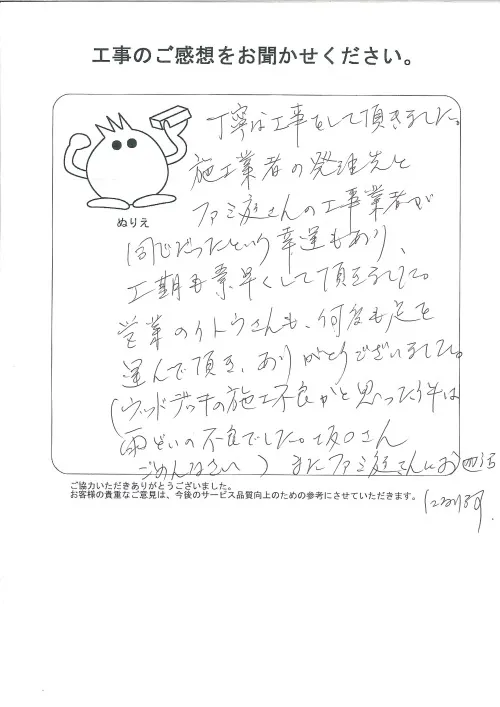 工事のご感想をお聞かせください。
丁寧な工事をして頂きました。
施工業者の発注先と
ファミ庭さんの工事業者が
ぬりえ
同じだったという幸運もあり、
工期も早くして頂きました。
営業のイトウさんも、何度も足を
運んで頂き、ありがとうございました。
(ウッドデッキの施工不良かと思った件は
雨どいの不良でした。坂口さん
ごめんなさい) またファミ庭さんにお世話
になります。
ご協力いただきありがとうございました。
お客様の貴重なご意見は、今後のサービス品質向上のための参考にさせていただきます。